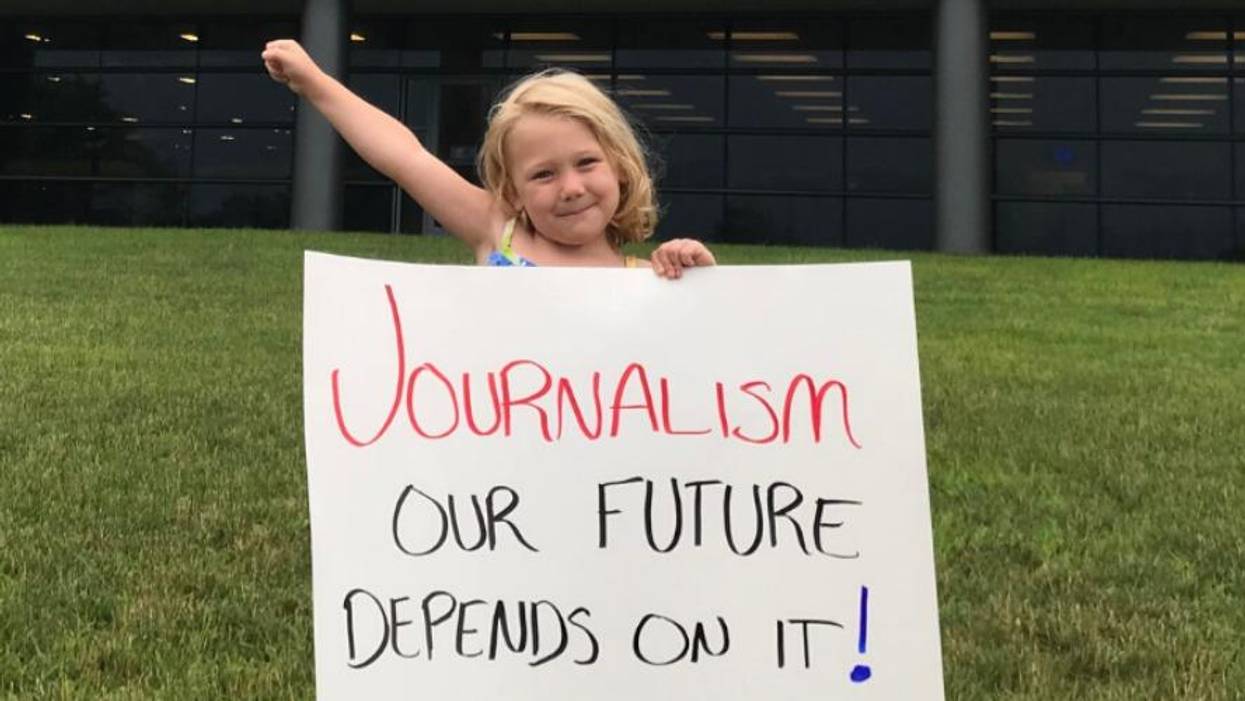 JOURNALISM
OUR FUTURE
DEPENDS ON IT!